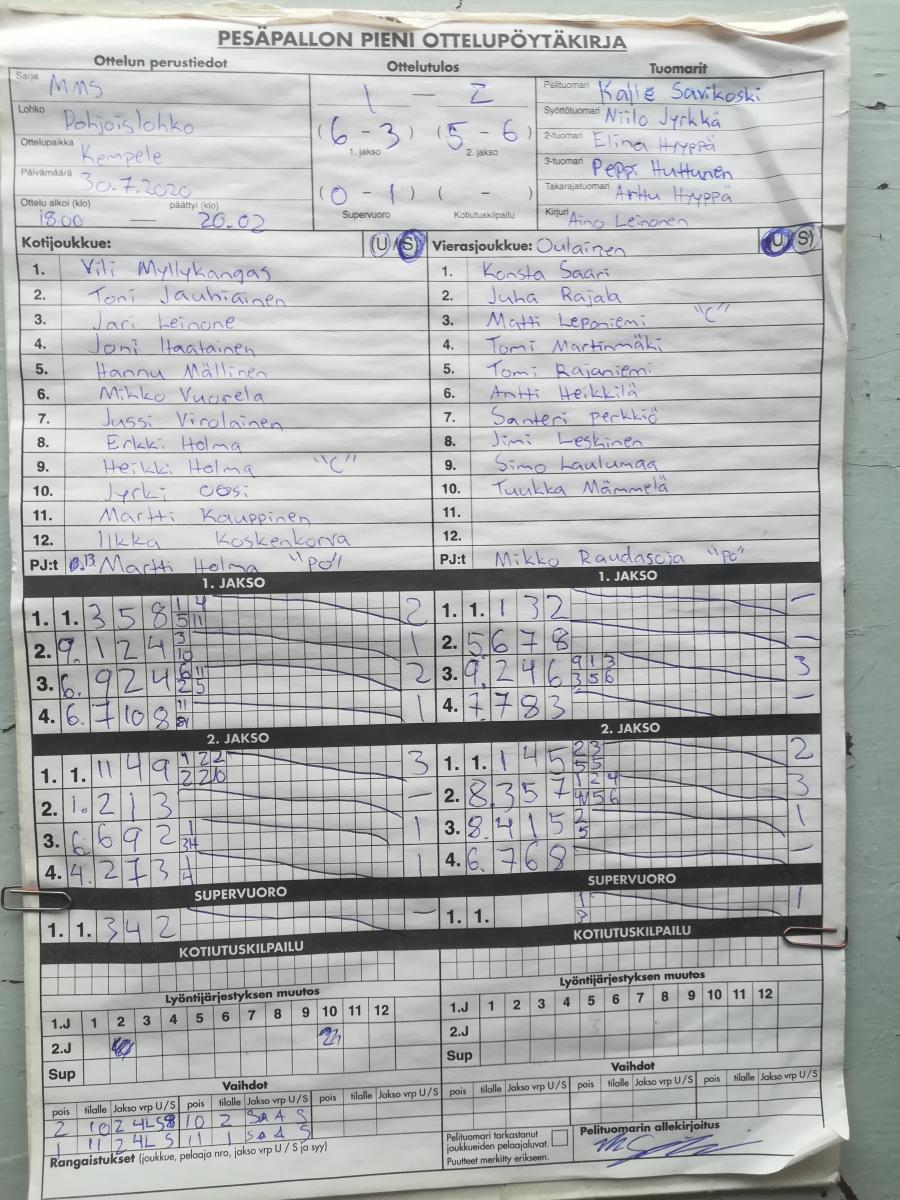 PESÄPALLON PIENI OTTELUPÖYTÄKIRJA
Ottelun perustiedot Ottelutulos Tuomarit
Sarja MMS 1 - 2 Pelituomari Kalle Savikoski
Lohko Pohjoislohko (6 - 3) (5 - 6) Syöttötuomari Niilo Jyrkkä
1. jakso 2. jakso
Ottelupaikka Kempele 2-tuomari Elina Hyyppä
Päivämäärä 30.7.2020 3-tuomari Peppi Huttunen
(0 - 1) ( - ) Takarajatuomari Arttu Hyyppä
Ottelu alkoi (klo) päättyi (klo) Supervuoro Kotiutuskilpailu
18.00 — 20.02 Kirjuri Aino Leinonen
Kotijoukkue: (U/S) Vierasjoukkue: Oulainen (U/S)
1. Vili Myllykangas 1. Konsta Saari
2. Toni Jauhiainen 2. Juha Rajala
3. Jari Leinone 3. Matti Leponiemi "C"
4. Joni Haatainen 4. Tomi Martinmäki
5. Hannu Mällinen 5. Tomi Rajaniemi
6. Mikko Vuorela 6. Antti Heikkilä
7. Jussi Virolainen 7. Santeri Perkkiö
8. Erkki Holma 8. Jimi Leskinen
9. Heikki Holma "C" 9. Simo Laulumaa
10. Jyrki Oosi 10. Tuukka Mämmelä
11. Martti Kauppinen 11.
12. Ilkka Koskenkorva 12.
PJ:t 13. Martti Holma "PO" PJ:t Mikko Raudasoja "PO"
1. JAKSO 1. JAKSO
1. 1. 3 5 8 1 4 5 11 2 1. 1. 1 3 2 —
2. 9. 1 2 4 3 10 1 2. 5 6 7 8 —
3. 6. 9 2 4 6 11 2 5 2 3. 9. 2 4 6 9 1 3 3 5 6 3
4. 6. 7 10 8 11 1 4. 7. 7 8 3 —
2. JAKSO 2. JAKSO
1. 1. 11 4 9 3 1. 1. 1 4 5 2 3 5 5 2
2. 1. 2 1 3 — 2. 8. 3 5 7 1 2 4 5 6 3
3. 6. 6 9 2 1 1 3. 8. 4 1 5 2 5 1
4. 4. 2 7 3 1 4 1 4. 6. 7 6 8 —
SUPERVUORO SUPERVUORO
1. 1. 3 4 2 — 1. 1. 1 3 1
KOTIUTUSKILPAILU KOTIUTUSKILPAILU
Lyöntijärjestyksen muutos Lyöntijärjestyksen muutos
1.J 1 2 3 4 5 6 7 8 9 10 11 12 1.J 1 2 3 4 5 6 7 8 9 10 11 12
2.J 2.J
Sup Sup
Vaihdot Vaihdot
pois tilalle Jakso vrp U/S pois tilalle Jakso vrp U/S pois tilalle pois tilalle Jakso vrp U/S pois tilalle Jakso vrp U/S pois tilalle Jakso vrp U/S
2 10 2 4L S 10 2 S A A S
1 11 2 4L S 11 1 S A A S
Rangaistukset (joukkue, pelaaja nro, jakso vrp U / S ja syy)
Pelituomari tarkastanut
joukkueiden pelaajaluvat.
Puutteet merkitty erikseen.
Pelituomarin allekirjoitus